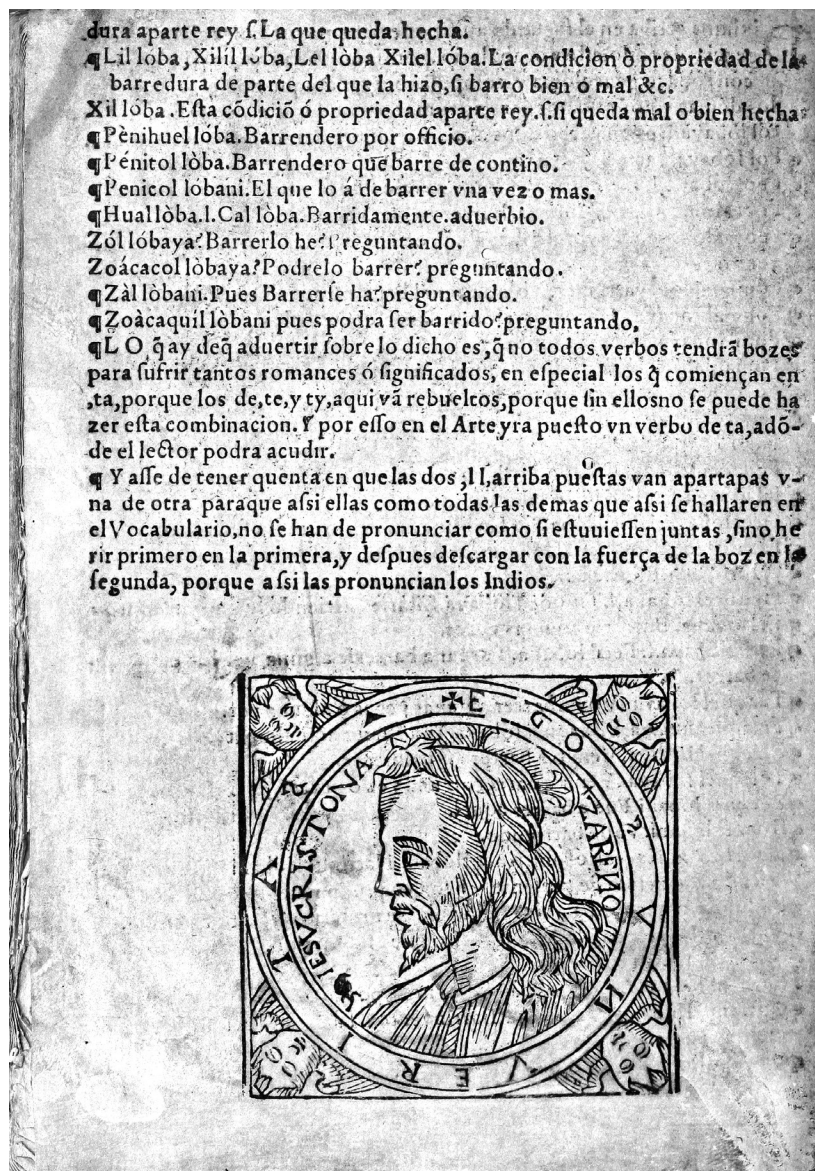 dura aparte rey ſ. La que queda hecha.
¶Lil lóba, Xilíl lóba, Lel lòba Xilel lóba. La condicion ò propriedad de la
barredura de parte del que la hizo, ſi barro bien o mal &c.
Xil lóba. Eſta cõdiciõ ó propriedad aparte rey. ſ. ſi queda mal o bien hecha
¶Pènihuel lóba. Barrendero por officio.
¶Pénitol lòba. Barrendero que barre de contino.
¶Penicol lóbani. El que lo á de barrer vna vez o mas.
¶Hual lòba. l. Cal lòba. Barridamente. aduerbio.
Zól lóbaya? Barrerlo he? Preguntando.
Zoácacol lòbaya? Podrelo barrer? preguntando.
¶Zàl lòbani. Pues Barrerſe ha? preguntando.
¶Zoàcaquíl lòbani pues podra ſer barrido? preguntando.
¶L O, q̃ ay deq̃ aduertir ſobre lo dicho es, q̃ no todos verbos tendrã bozes
para ſufrir tantos romances ó ſignificados, en eſpecial los q̃ comiençan en
,ta, porque los de, te, y ty, aqui vã rebueltos, porque ſin ellosno ſe puede ha
zer eſta combinacion. Y por eſſo en el Arteyra pueſto vn verbo de ta, adõ-
de el lector podra acudir.
¶ Y aſſe de tener quenta en que las dos, l l, arriba pueſtas van apartapas v-
na de otra paraque aſsi ellas como todas las demas que aſsi ſe hallaren en
el Vocabulario, no ſe han de pronunciar como ſi eſtuuieſſen juntas, ſino, he
rir primero en la primera, y deſpues deſcargar con la fuerça de la boz en la
ſegunda, porque aſsi las pronuncian los Indios.
✠ EGO SVM VERITAS
IESVCRISTO NAZARENO